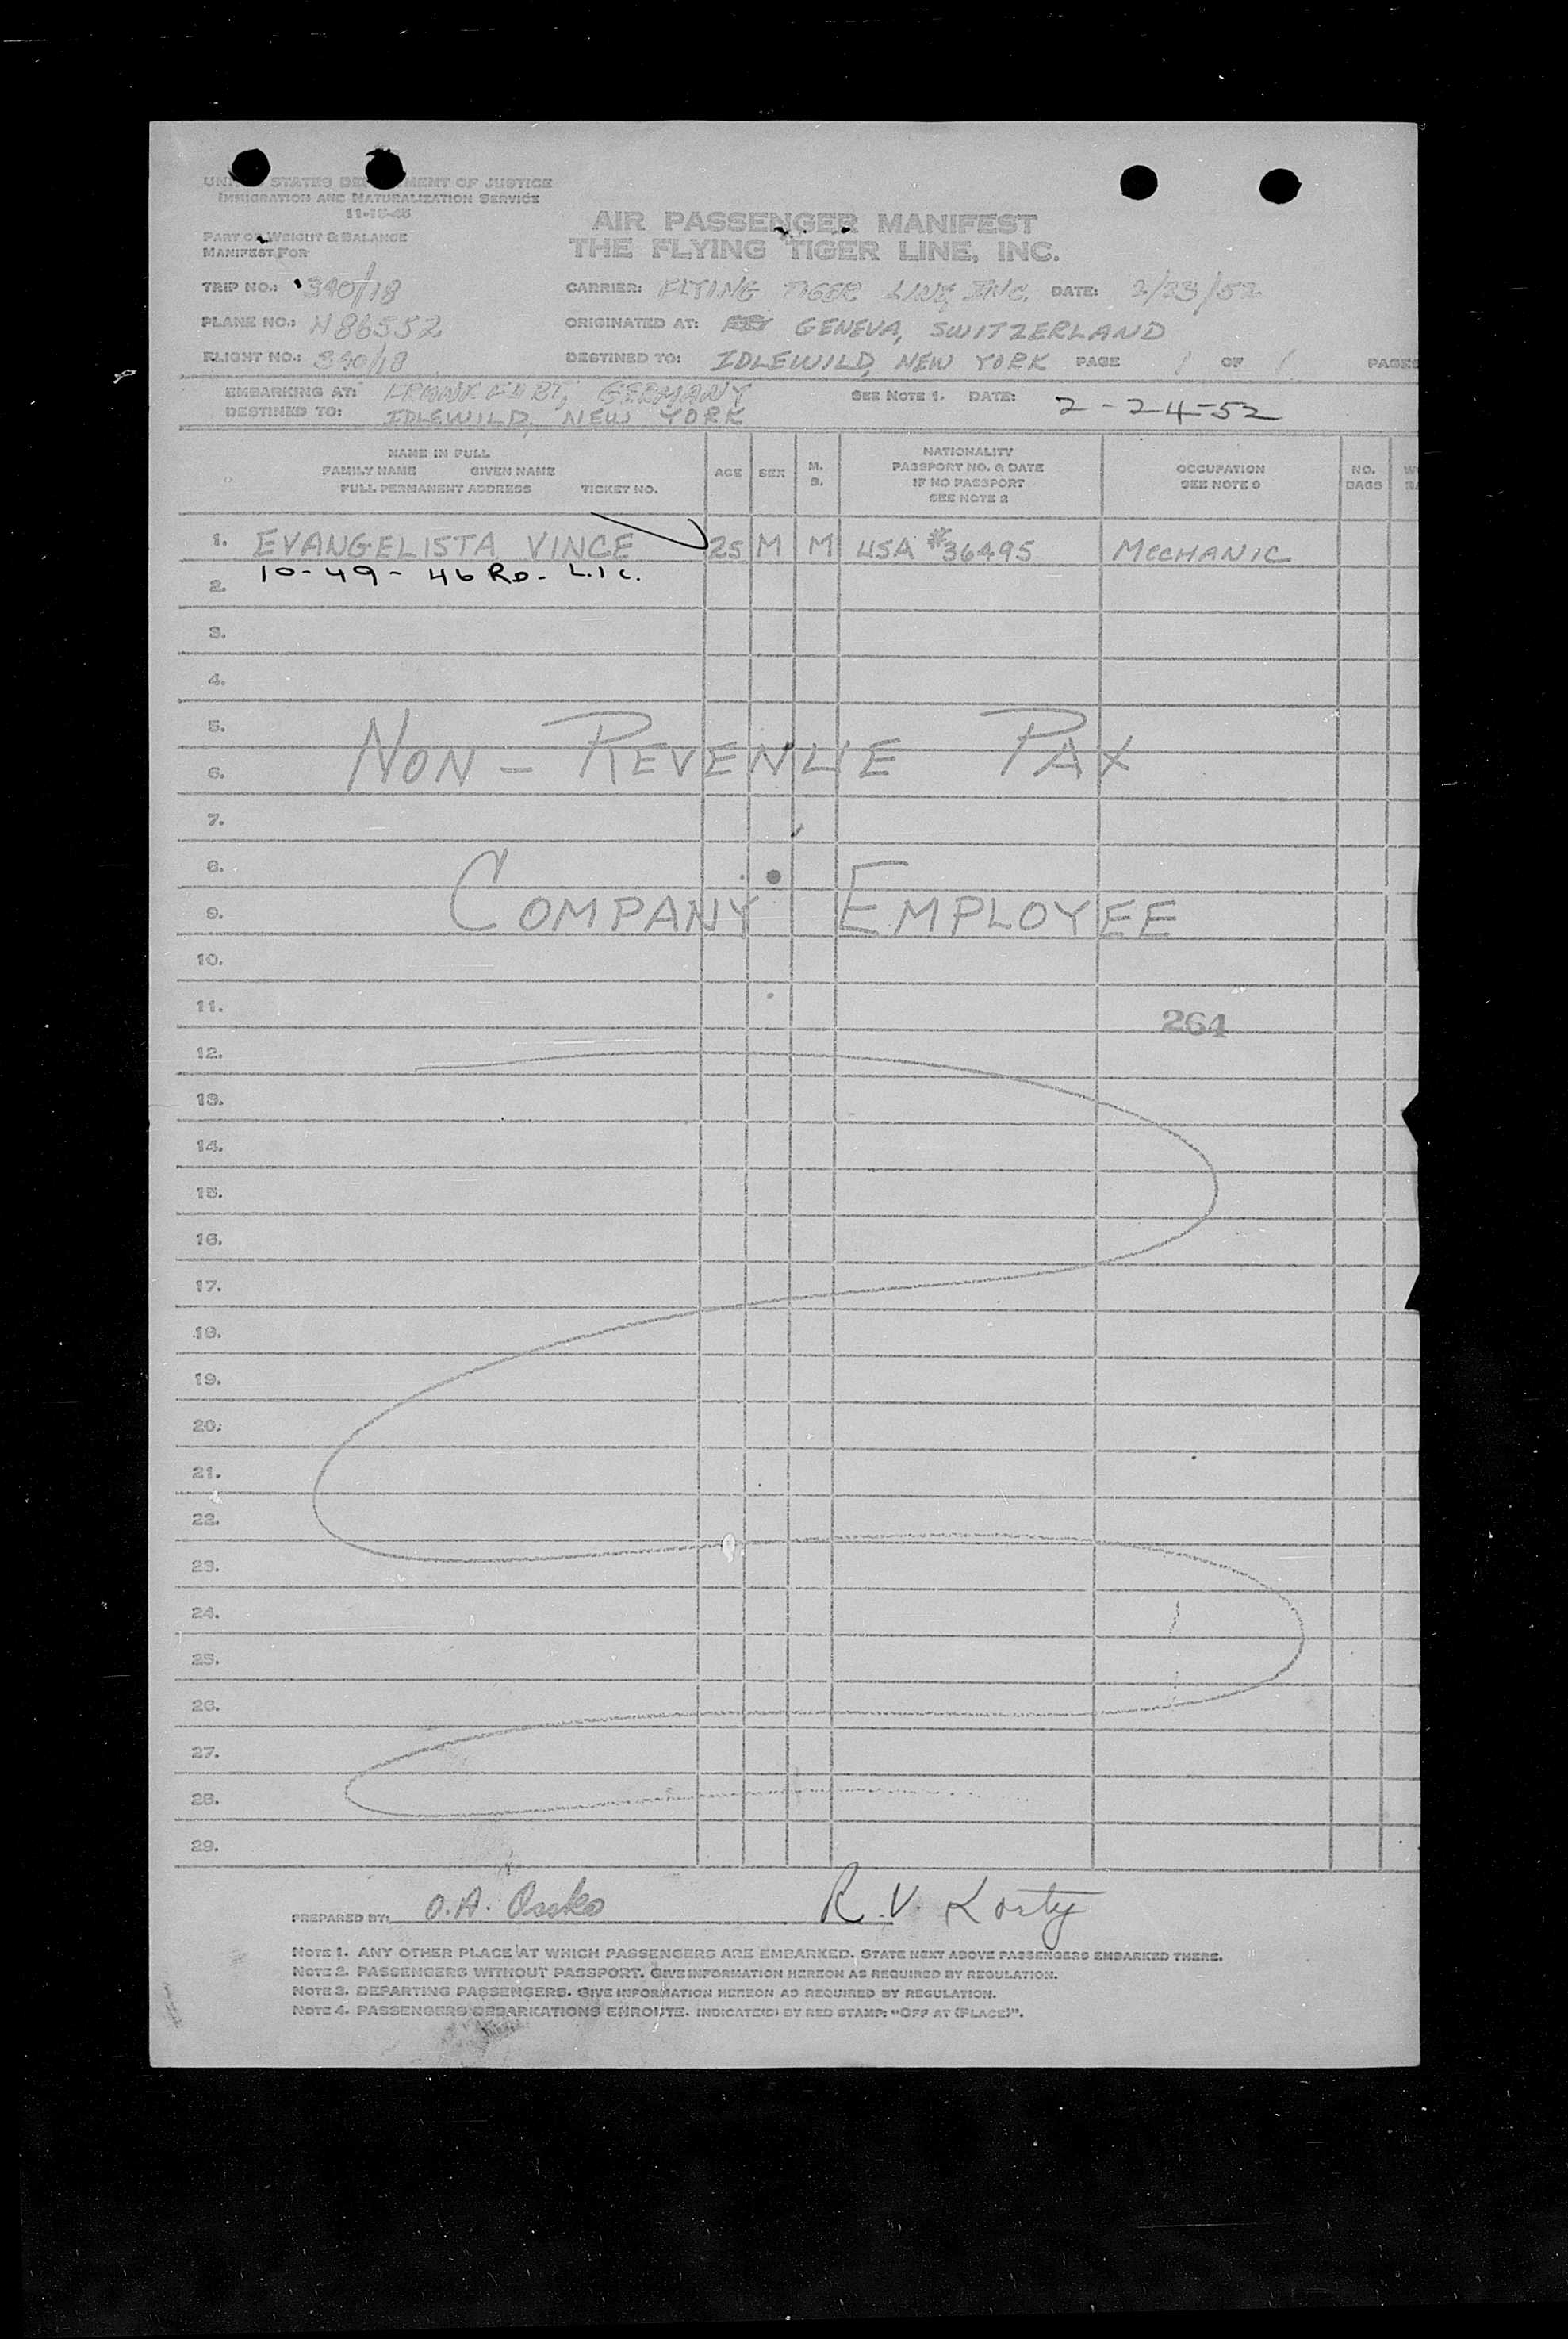 UNITED STATES DEPARTMENT OF JUSTICE
IMMIGRATION AND NATURALIZATION SERVICE
11-15-45
PART OF WEIGHT & BALANCE
MANIFEST FOR
AIR PASSENGER MANIFEST
THE FLYING TIGER LINE, INC.
TRIP NO.: 340/18 CARRIER: FLYING TIGER LINE, INC. DATE: 2/23/52
PLANE NO.: N86552 ORIGINATED AT: GENEVA, SWITZERLAND
FLIGHT NO.: 340/18 DESTINED TO: IDLEWILD, NEW YORK PAGE 1 OF 1 PAGES
EMBARKING AT: FRANKFURT, GERMANY SEE NOTE 1. DATE: 2-24-52
DESTINED TO: IDLEWILD, NEW YORK
NAME IN FULL
FAMILY NAME GIVEN NAME
FULL PERMANENT ADDRESS TICKET NO.
AGE SEX M. S.
NATIONALITY
PASSPORT NO. & DATE
IF NO PASSPORT
SEE NOTE 2
OCCUPATION
SEE NOTE 3
NO.
BAGS
1. EVANGELISTA VINCE 25 M M USA #36495 MECHANIC
10-49-46 RD. L.I.C.
2.
3.
4.
5.
NON-REVENUE PAX
6.
7.
8.
COMPANY EMPLOYEE
9.
10.
11.
264
12.
13.
14.
15.
16.
17.
18.
19.
20.
21.
22.
23.
24.
25.
26.
27.
28.
29.
PREPARED BY: O.A. R.V. Korty
NOTE 1. ANY OTHER PLACE AT WHICH PASSENGERS ARE EMBARKED. STATE NEXT ABOVE PASSENGERS EMBARKED THERE.
NOTE 2. PASSENGERS WITHOUT PASSPORT. GIVE INFORMATION HEREON AS REQUIRED BY REGULATION.
NOTE 3. DEPARTING PASSENGERS. GIVE INFORMATION HEREON AS REQUIRED BY REGULATION.
NOTE 4. PASSENGERS DEBARKATIONS ENROUTE. INDICATE(D) BY RED STAMP: "OFF AT (PLACE)".